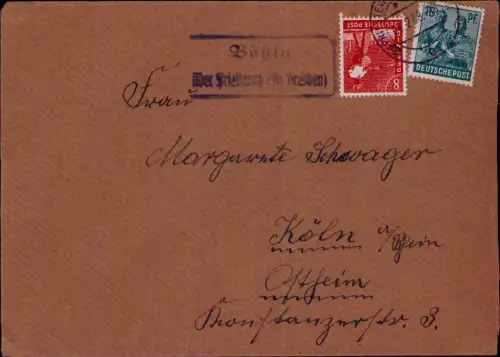 Böhla
über Priestewitz (Bz Dresden)
8
PFENNIG
DEUTSCHE POST
16 PF
DEUTSCHE POST
Frau
Margarete Schwager
Köln a/Rhein
Ostheim
Konstanzerstr. 3.